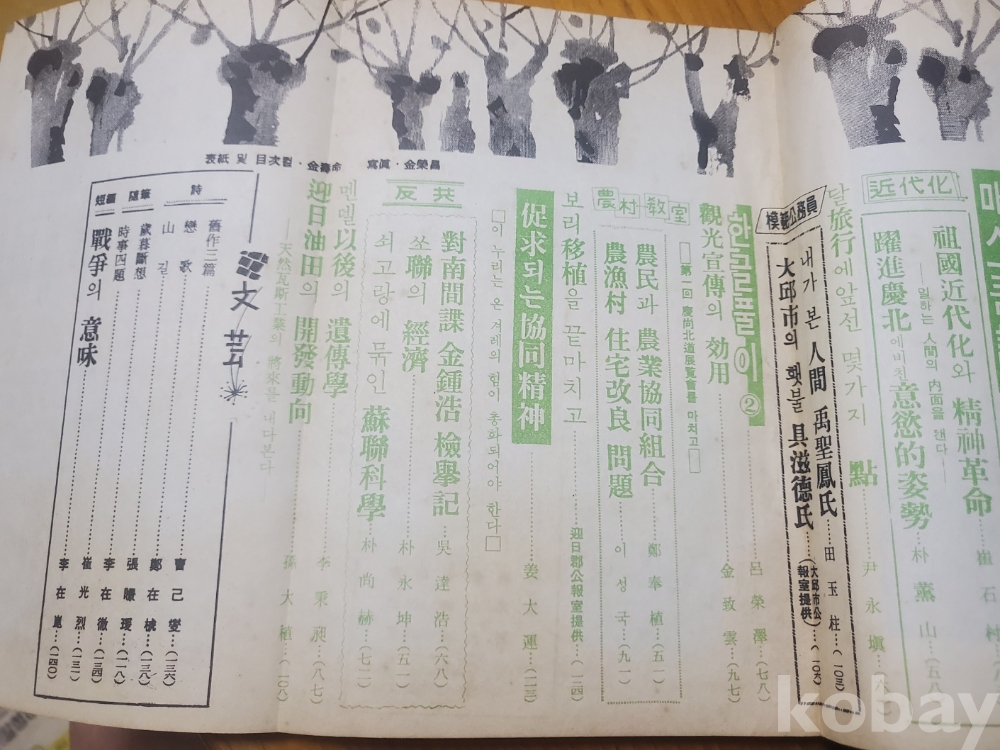 表紙 및 目次컽·金壽命 寫眞·金榮昌
近代化
祖國近代化와 精神革命
—일하는 人間의 內面을 캔다—
崔石
躍進慶北에 비친 意慾的姿勢
朴薰山
달旅行에 앞선 몇가지 點
尹永
模範公務員
내가 본 人間 禹聖鳳氏
田玉柱
(一〇三)
大邱市의 횃불 具滋德氏
(大邱市公報室提供)
(一〇六)
한글풀이②
呂榮澤
(七八)
觀光宣傳의 効用
金致雲
(九七)
□第一回 慶尙北道展覽會를 마치고□
農村敎室
農民과 農業協同組合
鄭奉植
(五一)
農漁村 住宅改良 問題
이성국
(九一)
보리移植을 끝마치고
迎日郡公報室提供
(一三四)
促求되는 協同精神
姜大運
□이 누리는 온 겨레의 힘이 총화되어야 한다□
反共
對南間諜 金鍾浩 檢擧記
吳達浩
(六八)
쏘聯의 經濟
朴永坤
(五一)
쇠고랑에 묶인 蘇聯科學
朴尙赫
(七一)
멘델 以後의 遺傳學
李秉
(八七)
迎日油田의 開發動向
孫大植
(一〇八)
—天然瓦斯工業의 將來를 내다본다
文芸
詩
舊作三篇
曺己燮
(一三六)
戀歌
鄭在
(一三九)
山길
張
(一一八)
隨筆
歲暮斷想
李在徹
(一三四)
時事四題
崔光烈
(一三一)
短篇
戰爭의 意味
李在
(一四〇)
kobay